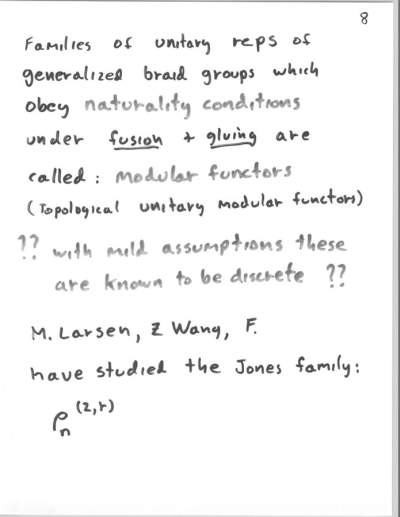 8
Families of unitary reps of
generalized braid groups which
obey naturality conditions
under fusion + gluing are
called : modular functors
(Topological unitary modular functors)
?? with mild assumptions these
are known to be discrete ??
M. Larsen, Z Wang, F.
have studied the Jones family:
ρₙ^(2,r)